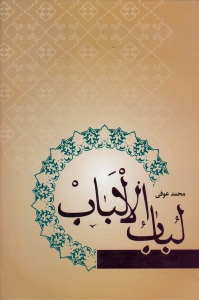 محمد عوفی
لُبابُ الْأَلْبابْ